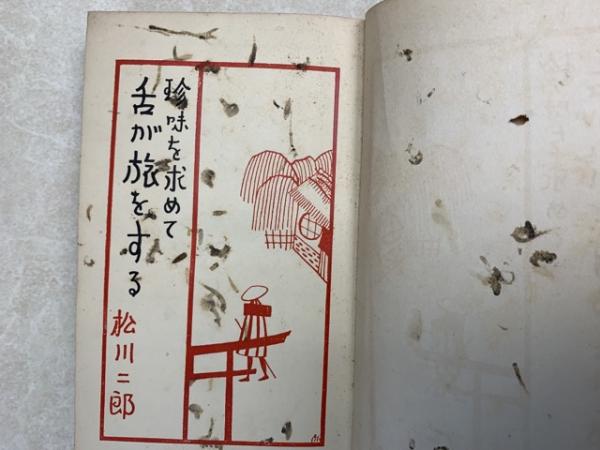 珍味を求めて
舌が旅をする
松川二郎